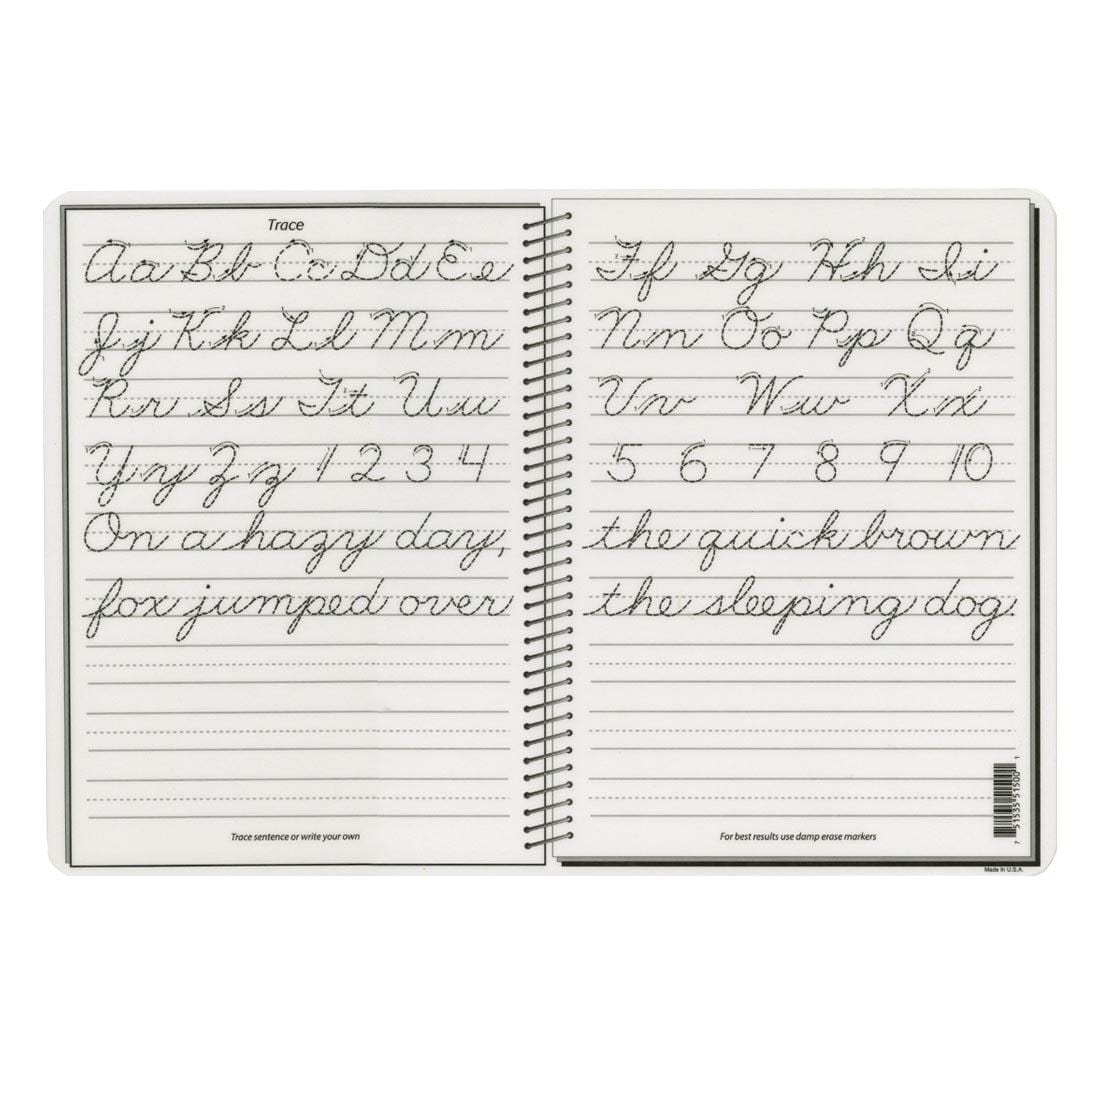 Trace
Aa Bb Cc Dd Ee Ff Gg Hh Ii
Jj Kk Ll Mm Nn Oo Pp Qq
Rr Ss Tt Uu Vv Ww Xx
Yy Zz 1 2 3 4 5 6 7 8 9 10
On a hazy day, the quick brown
fox jumped over the sleeping dog.
Trace sentence or write your own
For best results use damp erase markers
7 51535 51500 1
Made In U.S.A.